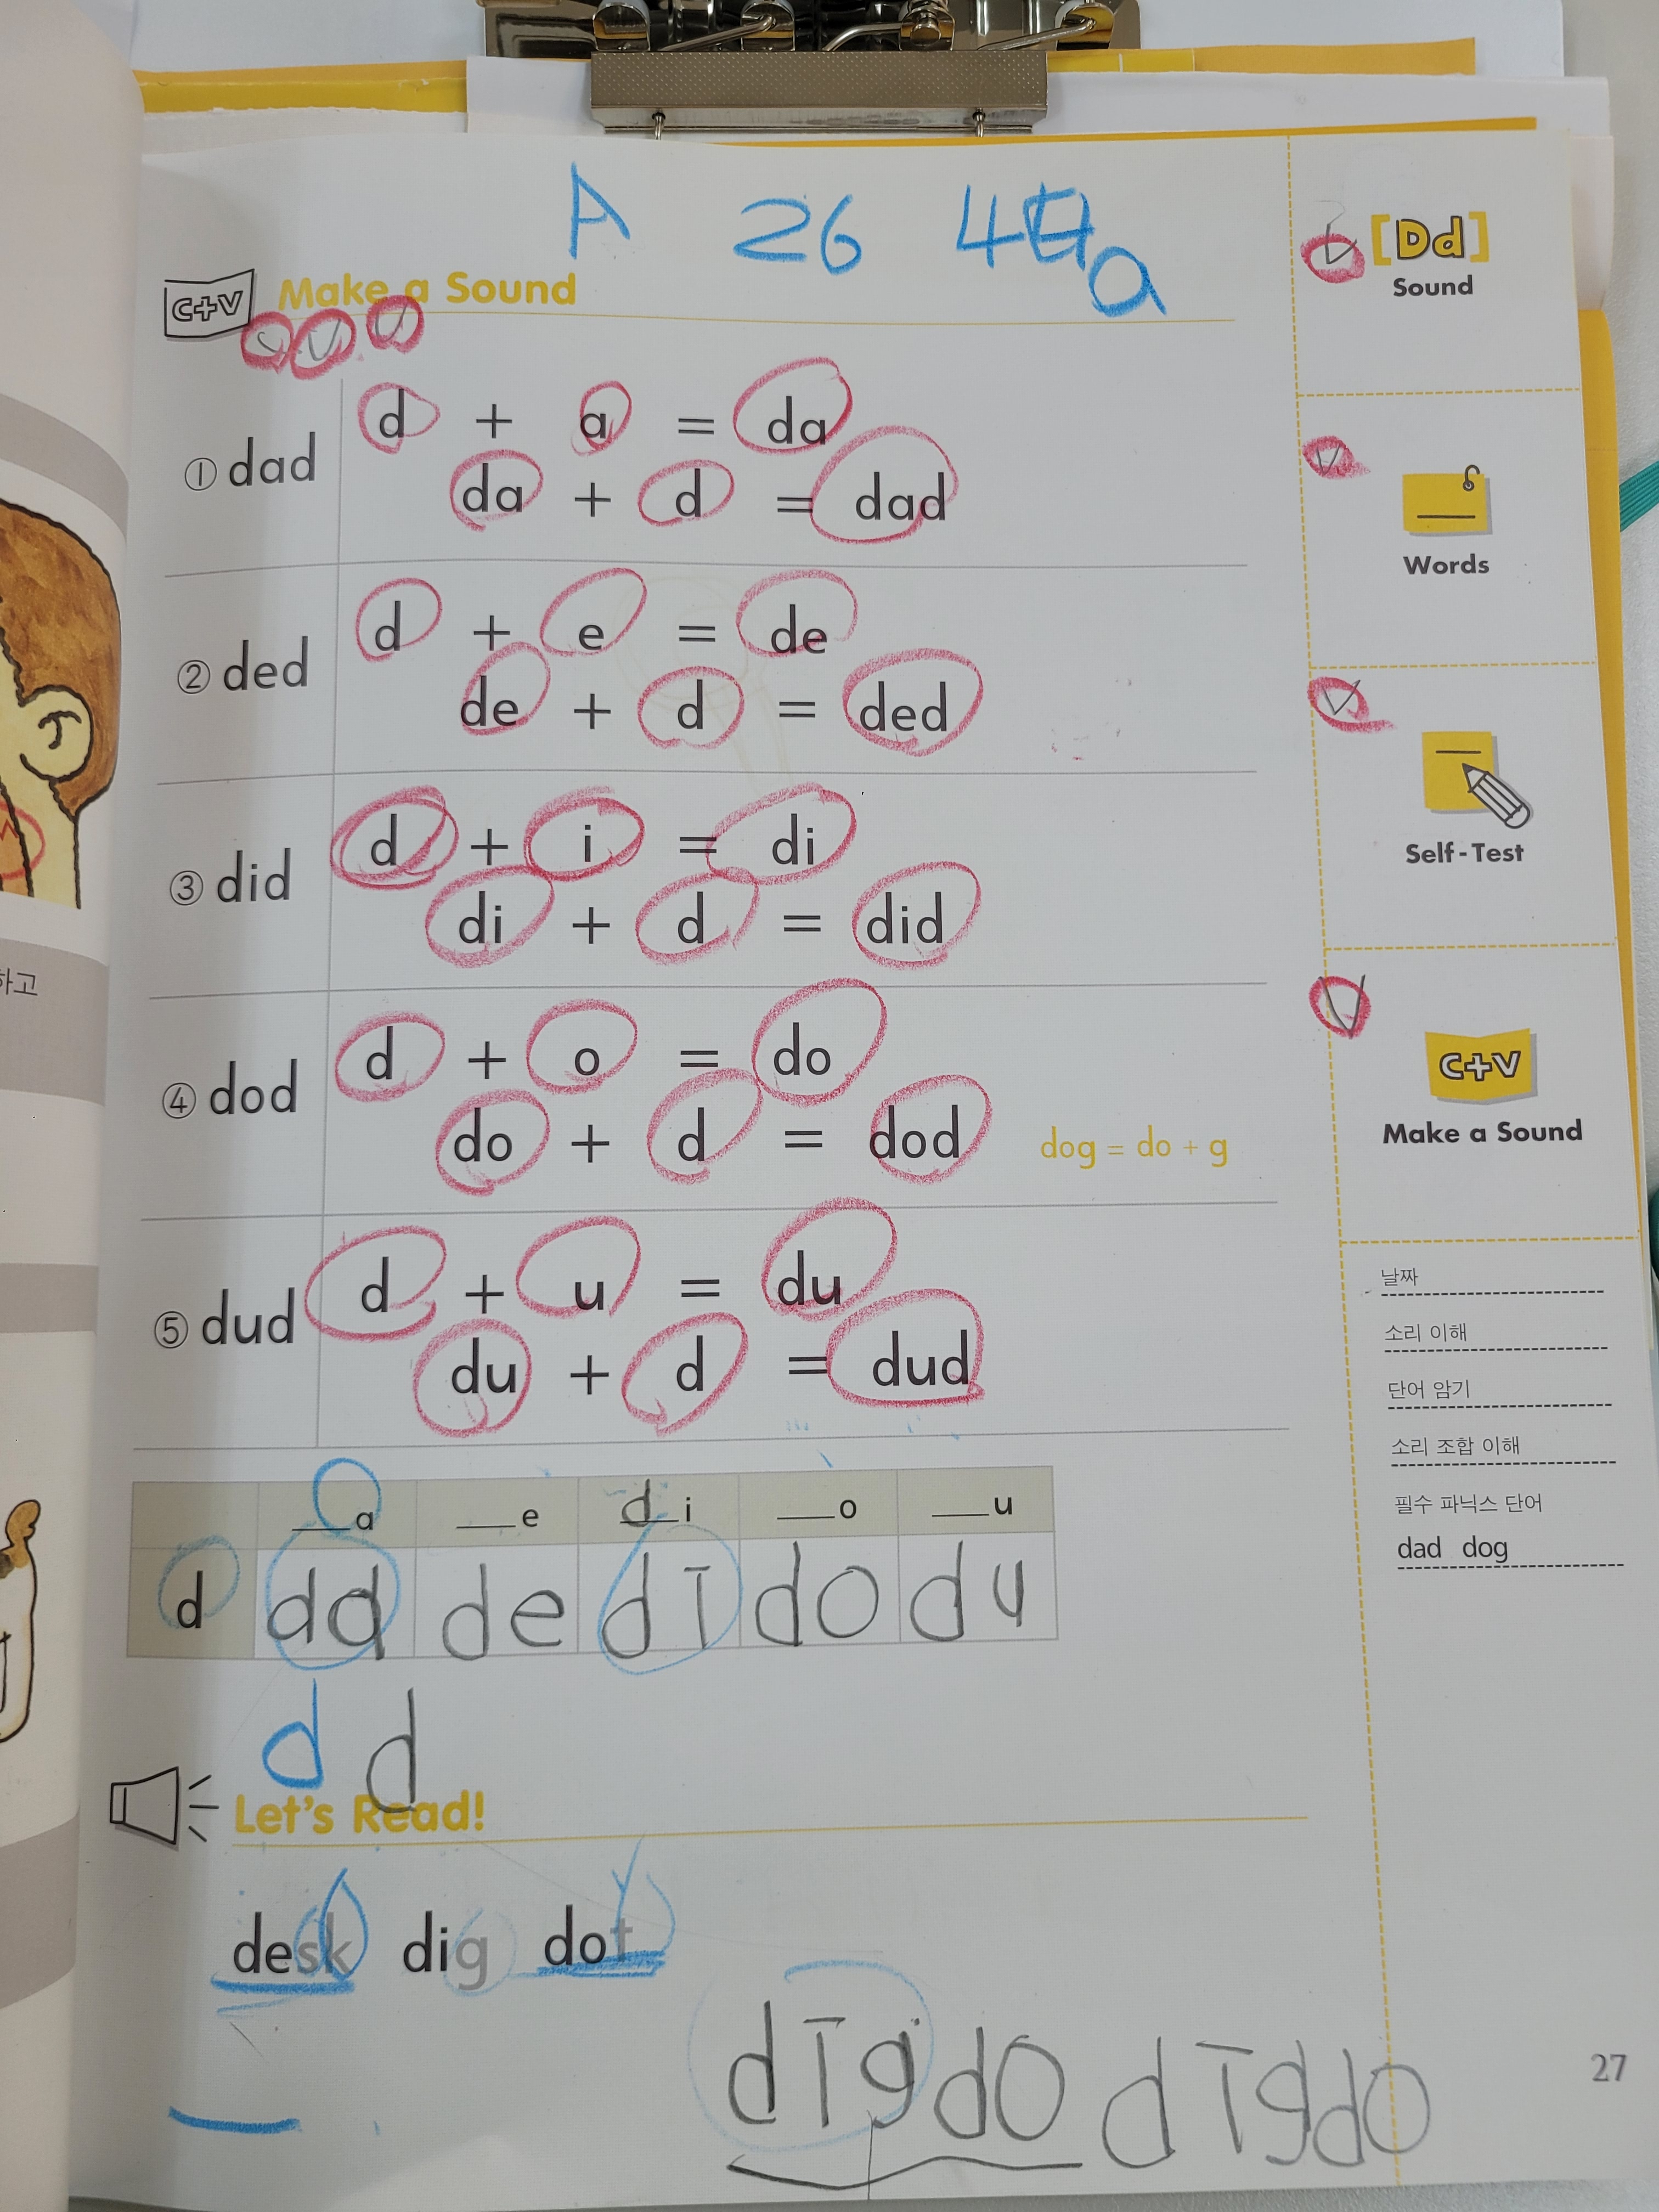 A 26 4
a
C+V Make a Sound
① dad
d + a = da
da + d = dad
② ded
d + e = de
de + d = ded
③ did
d + i = di
di + d = did
④ dod
d + o = do
do + d = dod
dog = do + g
⑤ dud
d + u = du
du + d = dud
__a __e d i __o __u
d da de di do du
d d
Let's Read!
desk dig dot
dig do dig do
하고
[Dd]
Sound
Words
Self-Test
C+V
Make a Sound
날짜
소리 이해
단어 암기
소리 조합 이해
필수 파닉스 단어
dad dog
27